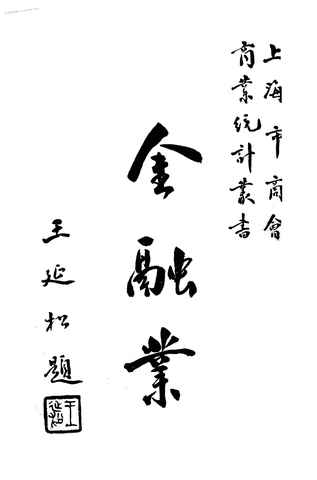 上海市商會
商業統計叢書
金融業
王延松題